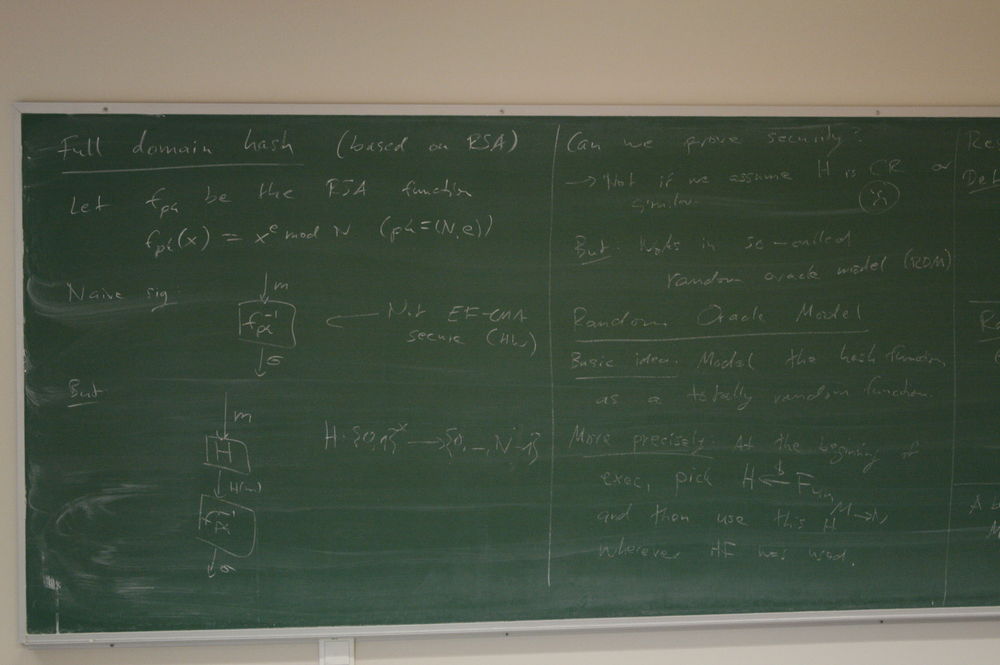 Full domain hash (based on RSA)
Let fpk be the RSA function
fpk(x) = x^e mod N (pk=(N,e))
Naive sig:
m
fpk^-1
σ
Not EF-CMA
secure (HW)
But
m
H
H(m)
fpk^-1
σ
H: {0,1}^* → {0,…,N-1}
Can we prove security?
→ Not if we assume H is CR or
similar
But: Works in so-called
random oracle model (ROM)
Random Oracle Model
Basic idea: Model the hash function
as a totally random function.
More precisely: At the beginning of
exec, pick H ←$ Fun
M→N
and then use this H
wherever HF was used.
Res
Def
R
A